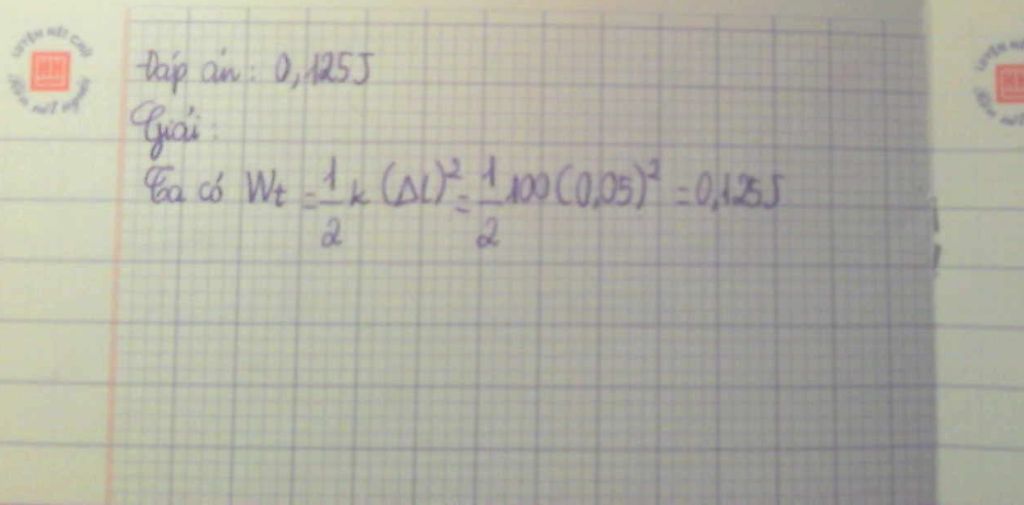 Đáp án: 0,125J
Giải:
Ta có Wt = 1/2 k (Δl)² = 1/2 100 (0,05)² = 0,125J